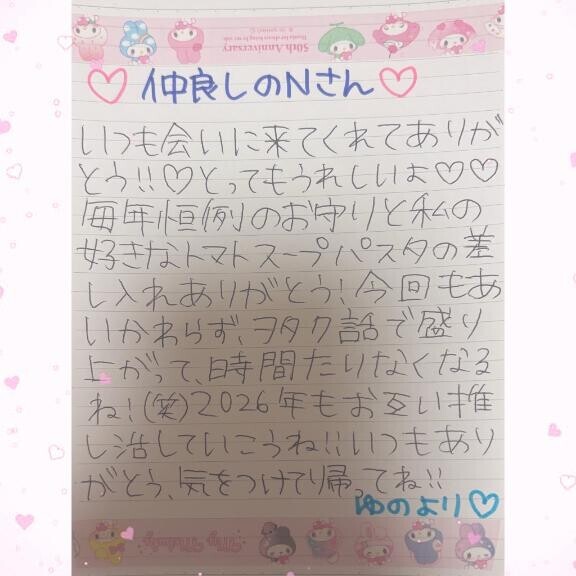 50th Anniversary
♡仲良しのNさん♡
いつも会いに来てくれてありが
とう!!♡とってもうれしいよ♡♡
毎年恒例のお守りと私の
好きなトマトスープパスタの差
し入れありがとう!今回もあ
いかわらず、ヲタク話で盛り
上がって、時間たりなくなる
ね!(笑)2026年もお互い推
し活していこうね!!いつもあり
がとう、気をつけて帰ってね!!
ゆのより♡
My Melody